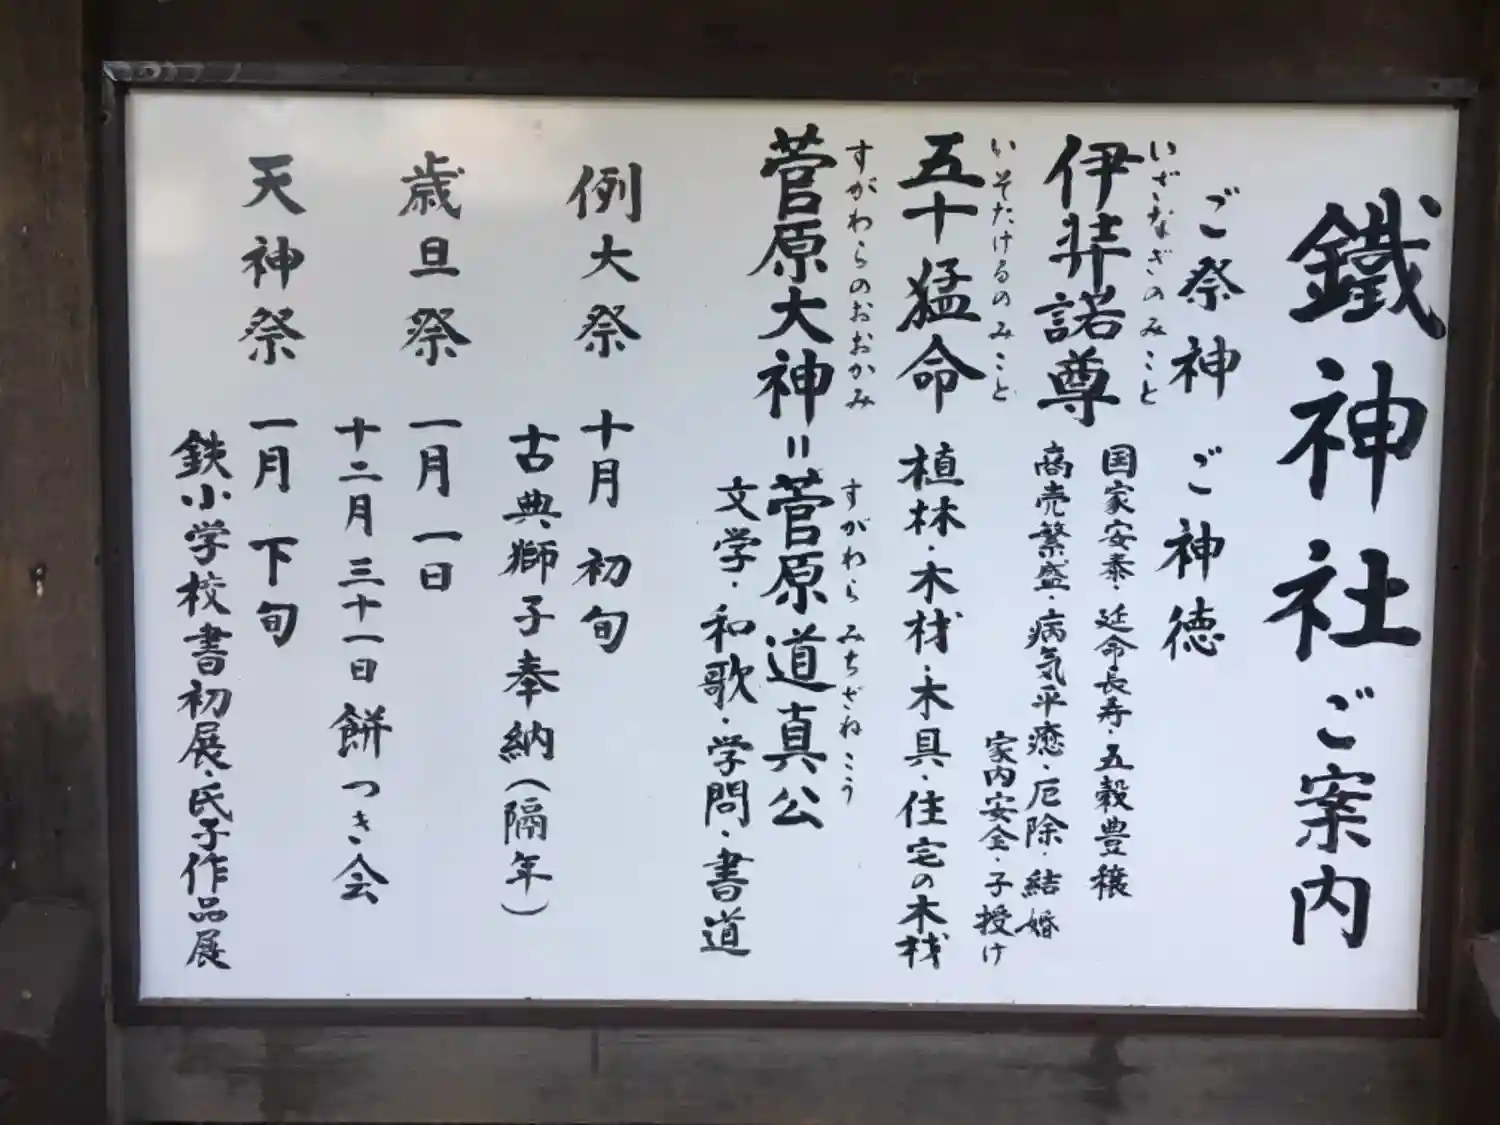 鐵神社ご案内
ご祭神 ご神徳
いざなぎのみこと
伊弉諾尊
国家安泰・延命長寿・五穀豊穣
商売繁盛・病気平癒・厄除・結婚
家内安全・子授け
いそたけるのみこと
五十猛命 植林・木材・木具・住宅の木材
すがわらのおおかみ すがわらみちざねこう
菅原大神=菅原道真公
文学・和歌・学問・書道
例大祭 十月 初旬
古典獅子奉納(隔年)
歳旦祭 一月一日
十二月三十一日餅つき会
天神祭 一月下旬
鉄小学校書初展・氏子作品展